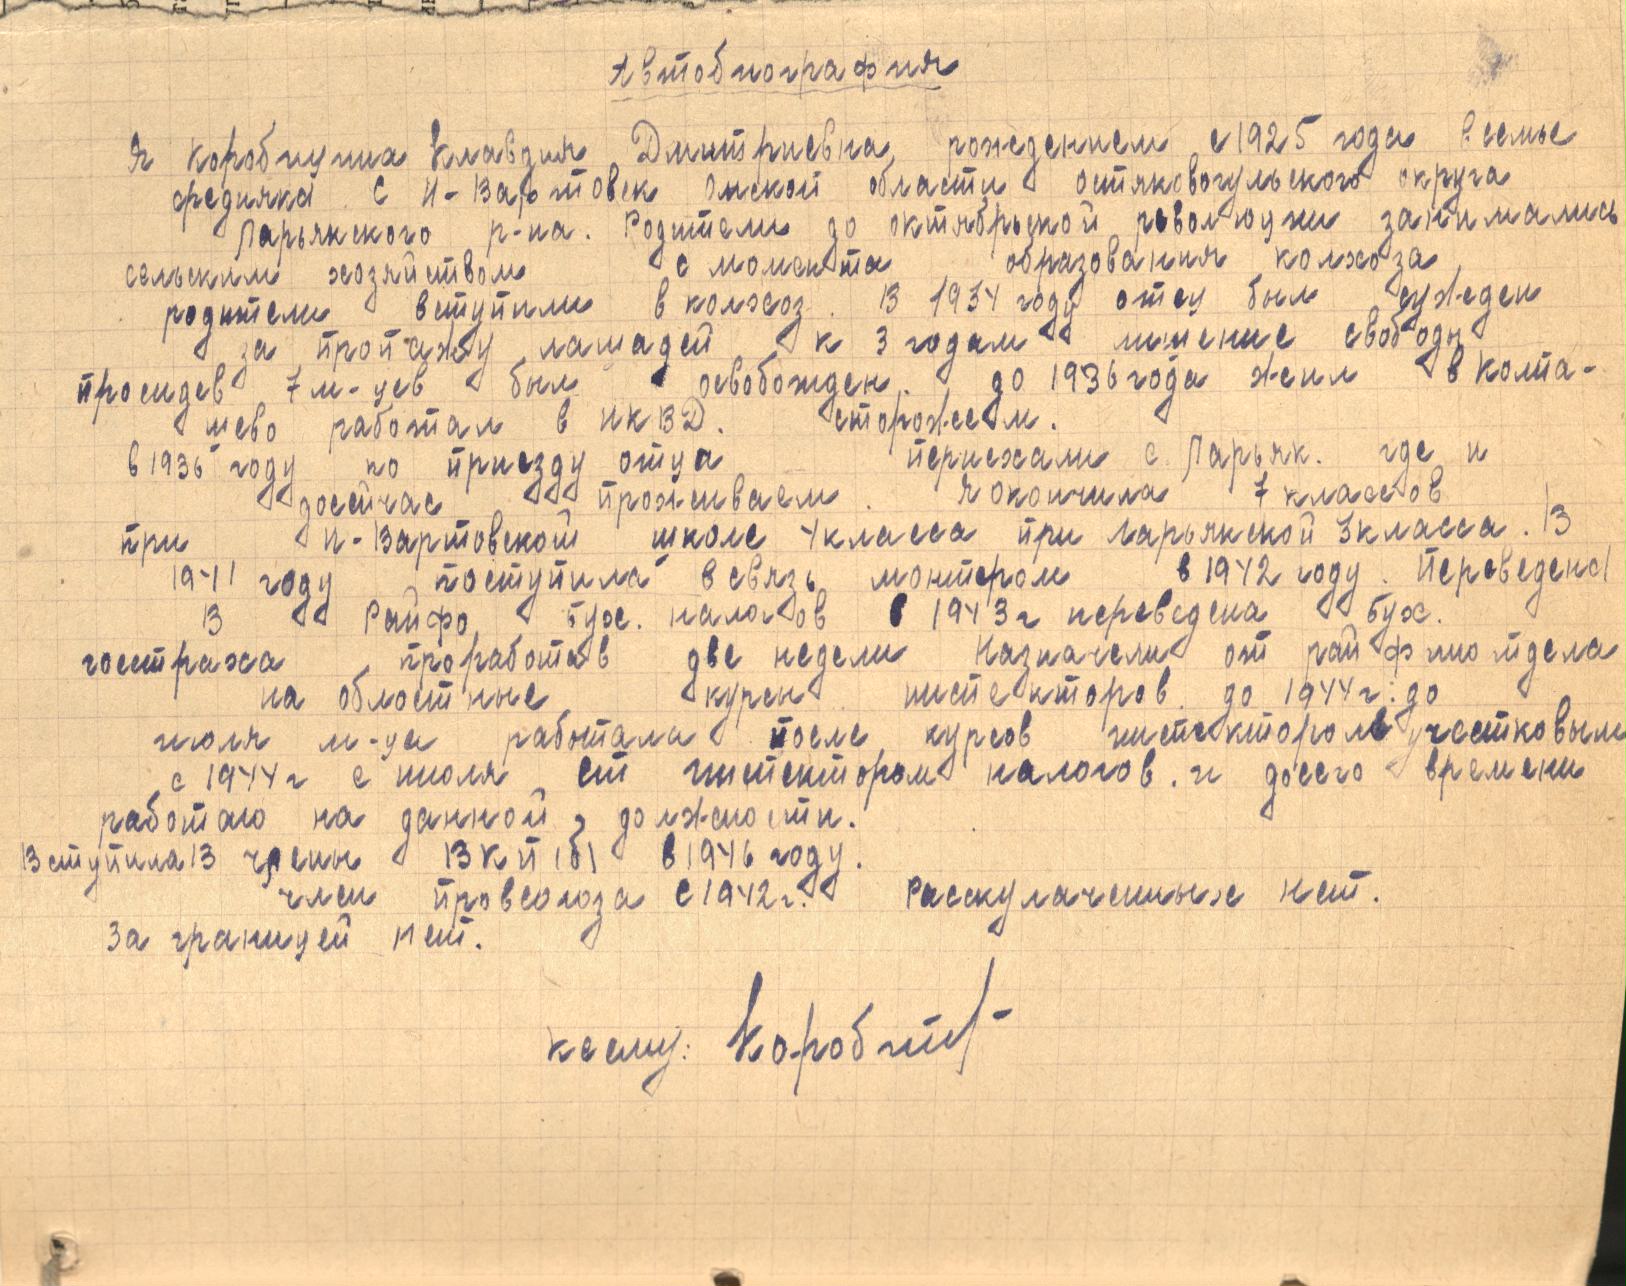 Автобиография
Я Коробицина Клавдия Дмитриевна рождением с 1925 года в семье
средняка. С Н-Вартовск Омской области остяковогульского округа
Ларьякского р-на. Родители до октябрьской революции занимались
сельским хозяйством с момента образования колхоза
родители вступили в колхоз. В 1934 году отец был сужеден
за пропажу лашадей к 3 годам лишение свободы
просидев 7 м-цев был освобожден. до 1936 года жил в Колпа-
шево работал в НКВД. сторожем.
в 1936 году по приезду отца периехали с. Ларьяк. где и
досейчас проживаем. Я окончила 7 классов
при Н-Вартовской школе 4 класса при Ларьякской 3 класса. В
1941 году поступила в связь монтером в 1942 году. Переведена
В Райфо бух. налогов в 1943 г переведена бух.
госстраха проработав две недели Назначели от райфинотдела
на обլостные курсы инспекторов. до 1944 г. до
июля м-ца работала после курсов инспектором участковым
с 1944 г с июля ст инспектором налогов. и досего времени
работаю на данной должности.
Вступила В члены ВКП(б) в 1946 году.
член провсоюза с 1942 г. Раскулаченных нет.
За границей нет.
К сему: Коробиц